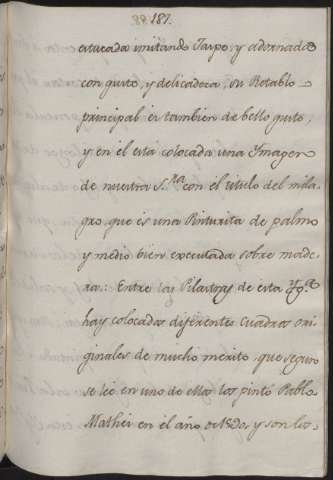 88 187.
estucada imitando Jaspe, y adornada
con gusto, y delicadeza, su Retablo
principal es tambien de bello gusto,
y en él está colocada una Ymagen
de nuestra S.ra con el titulo del mila-
gro, que es una Pinturita de palmo
y medio bien executada sobre made-
ra: Entre las Pilastras de esta Yg.a
hay colocados diferentes Cuadros ori-
ginales de mucho merito, que segun
se lee en uno de ellos los pintó Pablo
Mathei en el año de y son los